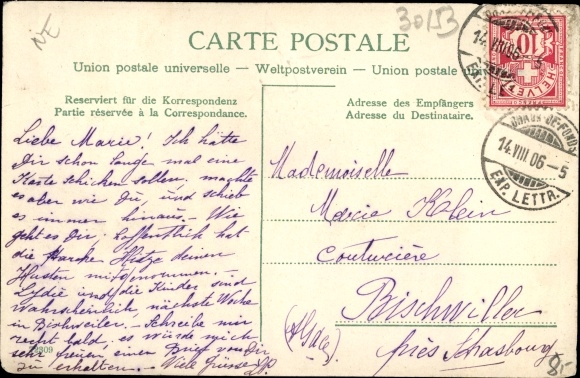 30153
CARTE POSTALE
Union postale universelle — Weltpostverein — Union postale
Reserviert für die Korrespondenz
Partie réservée à la Correspondance.
Adresse des Empfängers
Adresse du Destinataire.
10
HELVETIA
14.VIII.06
EXP. LETTR.
CHAUX-DE-FONDS
14.VIII.06–5
EXP. LETTR.
Liebe Marie! Ich hätte
Dir schon lange mal eine
Karte schicken sollen. machte
es aber wie Du, und schieb
es immer hinaus. – Wie
geht es Dir. Hoffentlich hat
die starke Hitze deinen
Husten mitgenommen. –
Lydie und die Kinder sind
wahrscheinlich, nächste Woche
in Bischweiler. – Schreibe mir
recht bald, es würde mich
sehr freuen einen Brief von Dir
zu erhalten. – Viele Grüsse
Mademoiselle
Marie Klein
Couturière
Bischwiller
(Alsace) près Strasbourg
22309